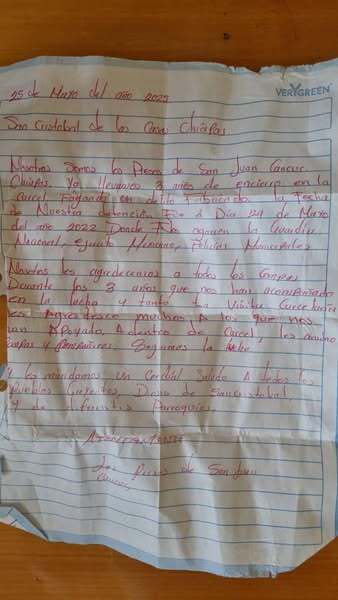 VERYGREEN
25 de Mayo del año 2025
San Cristobal de las Casas Chiapas
Nosotros Somos los Presos de San Juan Cancuc
Chiapas. Ya llevamos 3 años de encierro en la
Carcel Pagando un delito Fabricado. la Fecha
de Nuestra detención Fue el Dia 29 de Mayo
del año 2022 Donde Nos agarron la Guardia
Nacional, ejercito Mexicano, Policias Municipales
Nosotros les agradecemos a todos los Compas
Durante los 3 años que nos han acompañado
en la lucha y tanto la Visita Carcelaria
les Agradesco muchos A los que nos
han Apoyado Adentro de Carcel, les animo
Compas y Compañeres. Seguimos la lucha
Y les mandamos un Cordial Saludo A todos los
Pueblos Creyentes, Dioso de San Cristobal
y de diferentes Parroquias.
Los Presos de San Juan
Cancuc